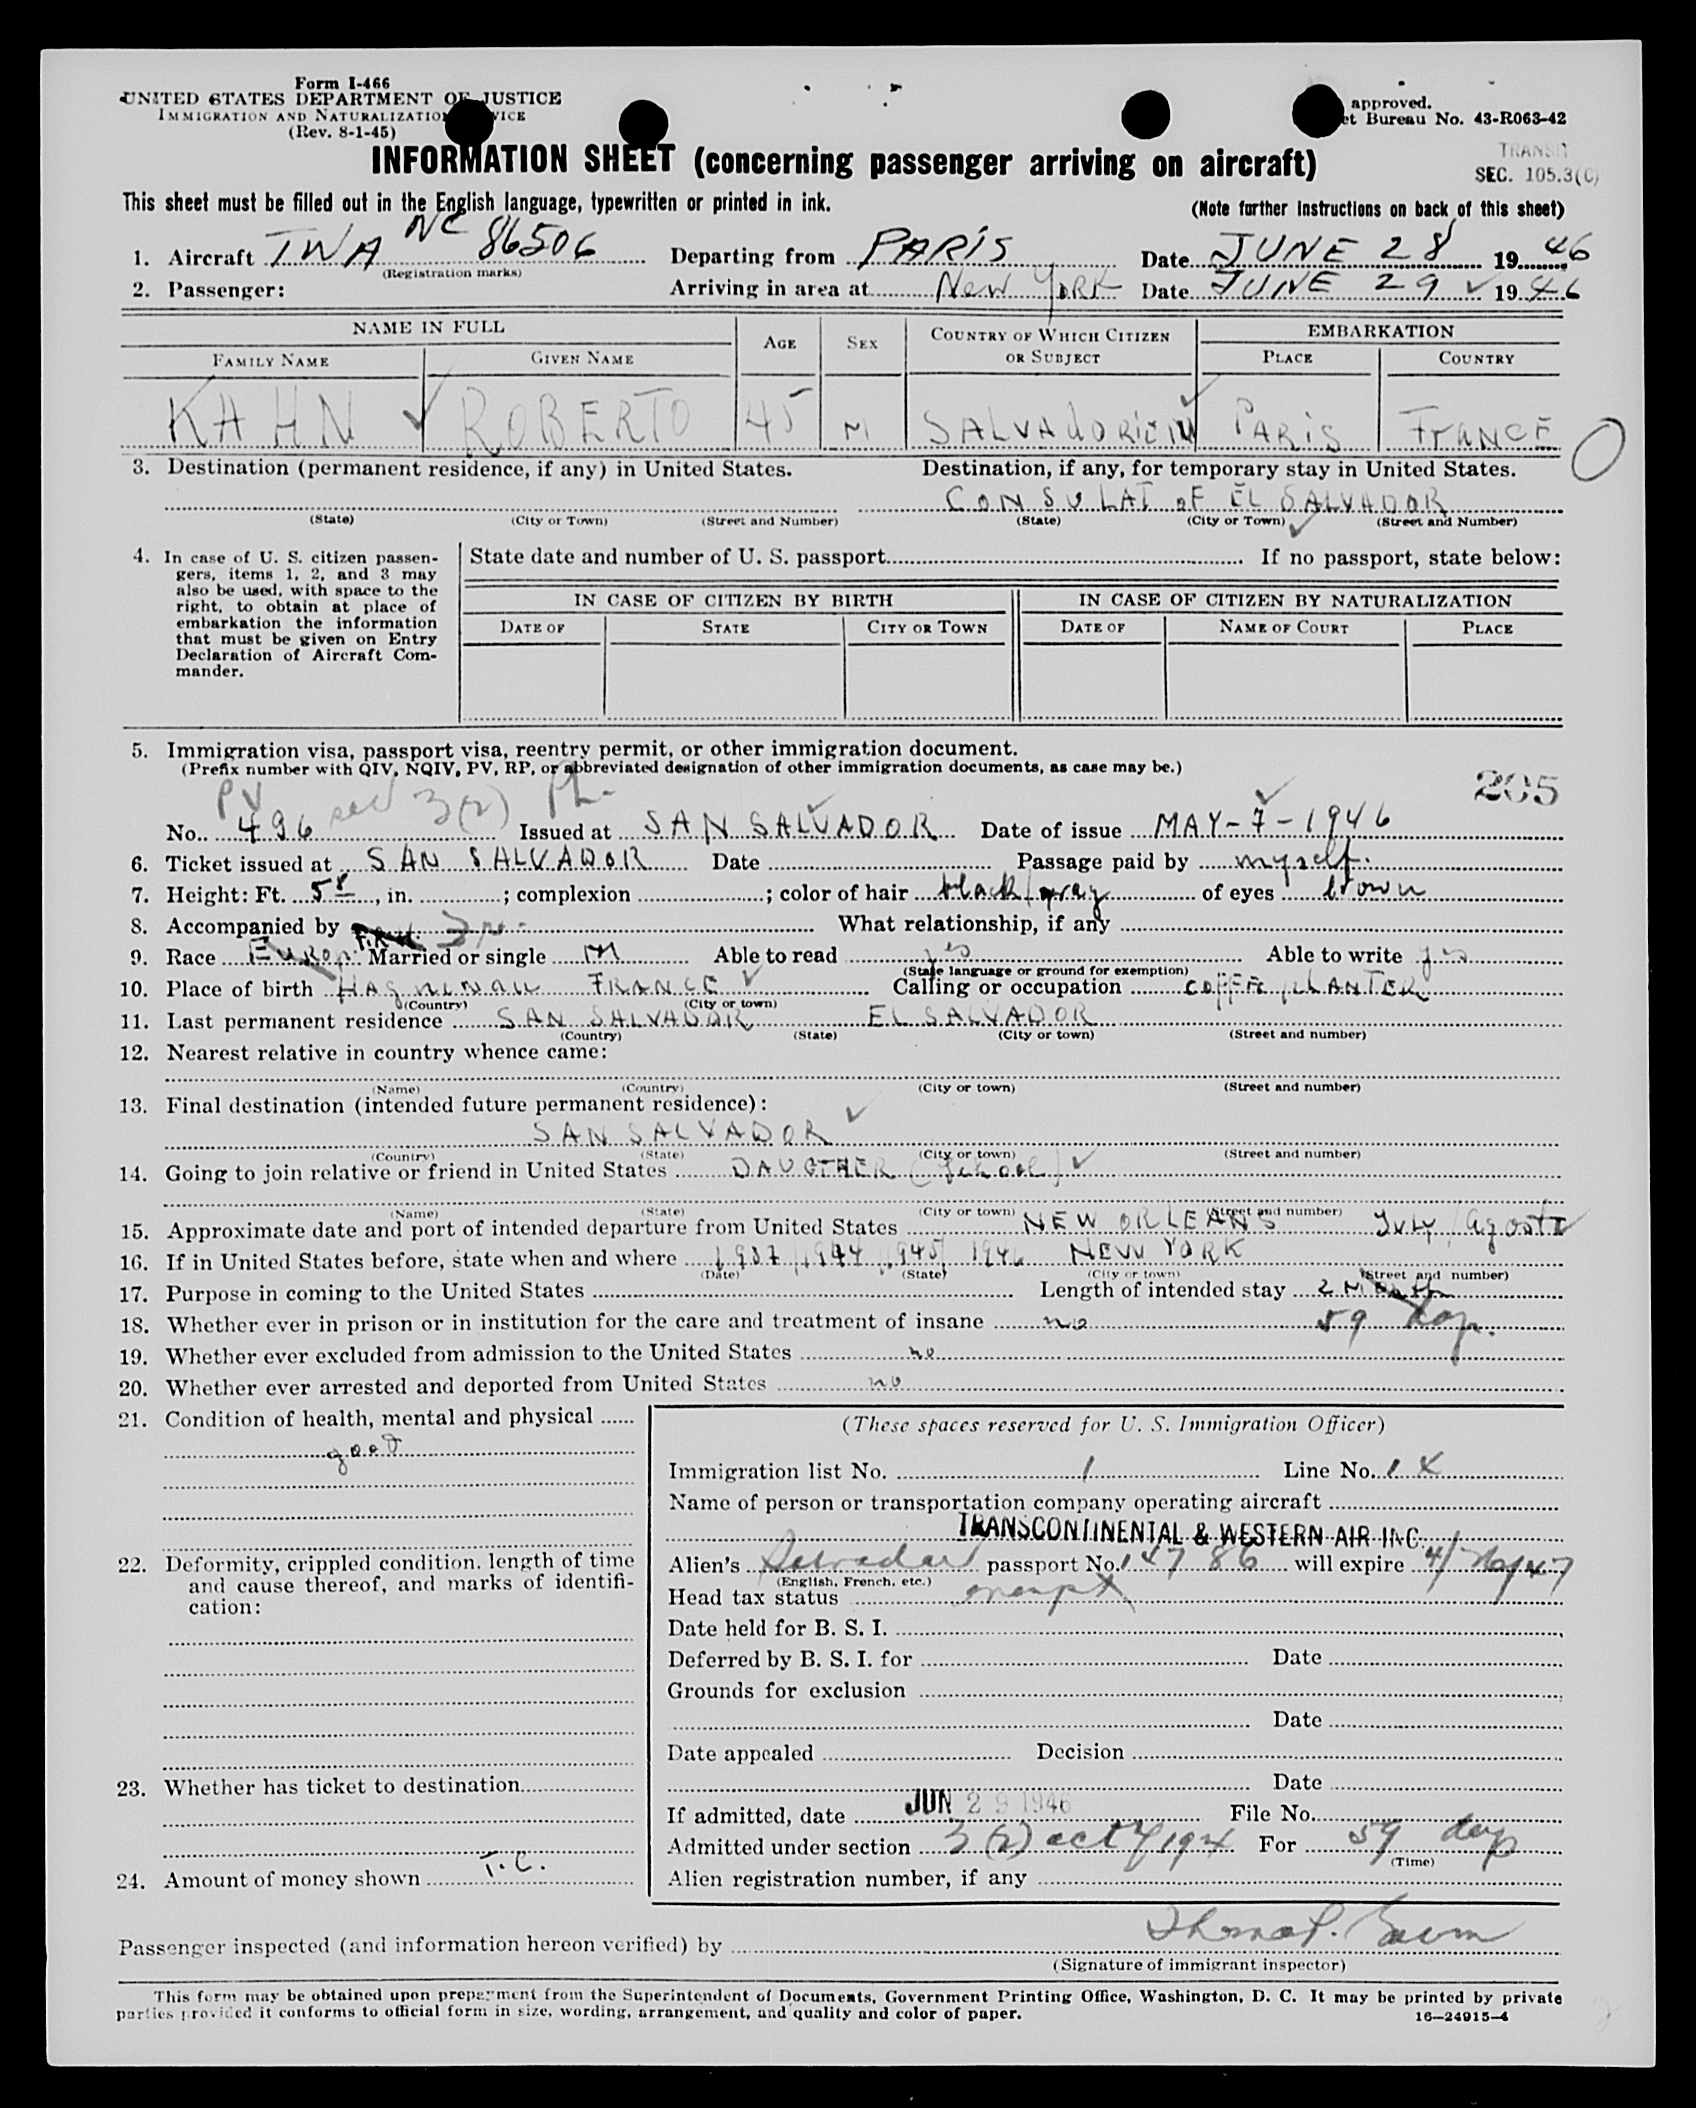 Form I-466
UNITED STATES DEPARTMENT OF JUSTICE
IMMIGRATION AND NATURALIZATION
(Rev. 8-1-45)
approved.
et Bureau No. 43-R063-42
INFORMATION SHEET (concerning passenger arriving on aircraft)
TRANSIT
SEC. 105.3(C)
This sheet must be filled out in the English language, typewritten or printed in ink.
(Note further instructions on back of this sheet)
1. Aircraft TWA NC 86506 Departing from PARIS Date JUNE 28 1946
(Registration marks)
2. Passenger: Arriving in area at New YORK Date JUNE 29 1946
NAME IN FULL AGE SEX COUNTRY OF WHICH CITIZEN OR SUBJECT EMBARKATION
FAMILY NAME GIVEN NAME PLACE COUNTRY
KAHN ROBERTO 45 M SALVADORIEN PARIS FRANCE
3. Destination (permanent residence, if any) in United States. Destination, if any, for temporary stay in United States.
CONSULAT oF EL SALVADOR
(State) (City or Town) (Street and Number) (State) (City or Town) (Street and Number)
4. In case of U. S. citizen passen-
gers, items 1, 2, and 3 may
also be used, with space to the
right, to obtain at place of
embarkation the information
that must be given on Entry
Declaration of Aircraft Com-
mander.
State date and number of U. S. passport If no passport, state below:
IN CASE OF CITIZEN BY BIRTH IN CASE OF CITIZEN BY NATURALIZATION
DATE OF STATE CITY OR TOWN DATE OF NAME OF COURT PLACE
5. Immigration visa, passport visa, reentry permit, or other immigration document.
(Prefix number with QIV, NQIV, PV, RP, or abbreviated designation of other immigration documents, as case may be.)
205
PV sec 3(2)
No. 496 Issued at SAN SALVADOR Date of issue MAY-7-1946
6. Ticket issued at SAN SALVADOR Date Passage paid by myself.
7. Height: Ft. 5 8, in. ; complexion ; color of hair black/gray of eyes brown
8. Accompanied by What relationship, if any
9. Race Europ. Married or single M Able to read yes Able to write yes
(State language or ground for exemption)
10. Place of birth FRANCE Calling or occupation COFFE PLANTER
(Country) (City or town)
11. Last permanent residence SAN SALVADOR EL SALVADOR
(Country) (State) (City or town) (Street and number)
12. Nearest relative in country whence came:
(Name) (Country) (City or town) (Street and number)
13. Final destination (intended future permanent residence):
SAN SALVADOR
(Country) (State) (City or town) (Street and number)
14. Going to join relative or friend in United States DAUGTHER (School)
(Name) (State) (City or town) (Street and number)
15. Approximate date and port of intended departure from United States NEW ORLEANS July/Agosti
16. If in United States before, state when and where 1937 1944 1945 1946 NEW YORK
(Date) (State) (City or town) (Street and number)
17. Purpose in coming to the United States Length of intended stay 2 Month
18. Whether ever in prison or in institution for the care and treatment of insane no 59 days.
19. Whether ever excluded from admission to the United States no
20. Whether ever arrested and deported from United States no
21. Condition of health, mental and physical
good
22. Deformity, crippled condition, length of time
and cause thereof, and marks of identifi-
cation:
23. Whether has ticket to destination
24. Amount of money shown T.C.
(These spaces reserved for U. S. Immigration Officer)
Immigration list No. 1 Line No. 1 X
Name of person or transportation company operating aircraft
TRANSCONTINENTAL & WESTERN AIR INC.
Alien's Salvadoran passport No. 14786 will expire 4/May/47
(English, French, etc.)
Head tax status exempt
Date held for B. S. I.
Deferred by B. S. I. for Date
Grounds for exclusion
Date
Date appealed Decision
Date
If admitted, date JUN 29 1946 File No.
Admitted under section 3(2) act of 1924 For 59 days
(Time)
Alien registration number, if any
Passenger inspected (and information hereon verified) by
(Signature of immigrant inspector)
This form may be obtained upon prepayment from the Superintendent of Documents, Government Printing Office, Washington, D. C. It may be printed by private
parties provided it conforms to official form in size, wording, arrangement, and quality and color of paper.
16—24915-4